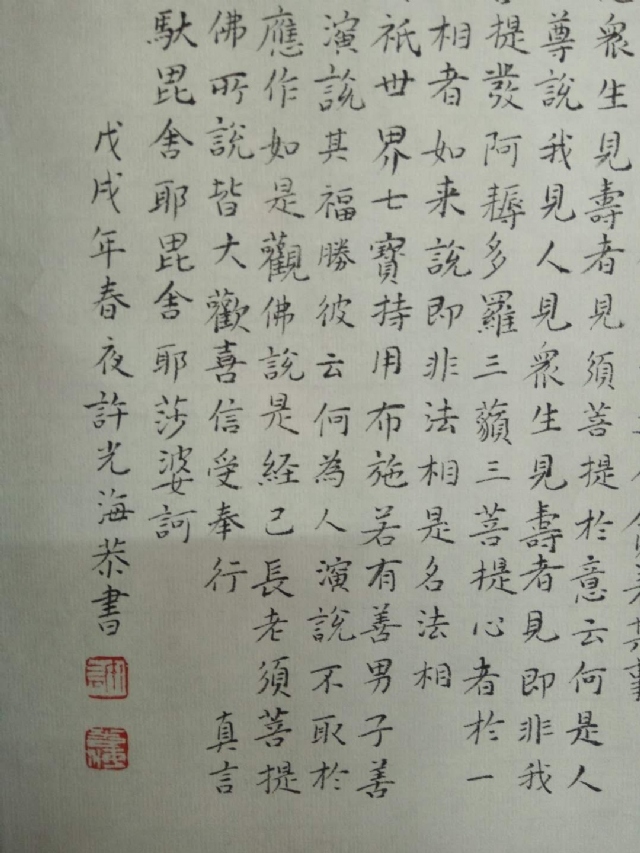 眾生見壽者見須菩提於意云何是人
尊說我見人見眾生見壽者見即非我
提發阿耨多羅三藐三菩提心者於一
相者如来說即非法相是名法相
祇世界七寶持用布施若有善男子善
演說其福勝彼云何為人演說不取於
應作如是觀佛說是経已長老須菩提
佛所說皆大歡喜信受奉行 真言
馱毘舍耶毘舍耶莎婆訶
戊戌年春夜許光海恭書